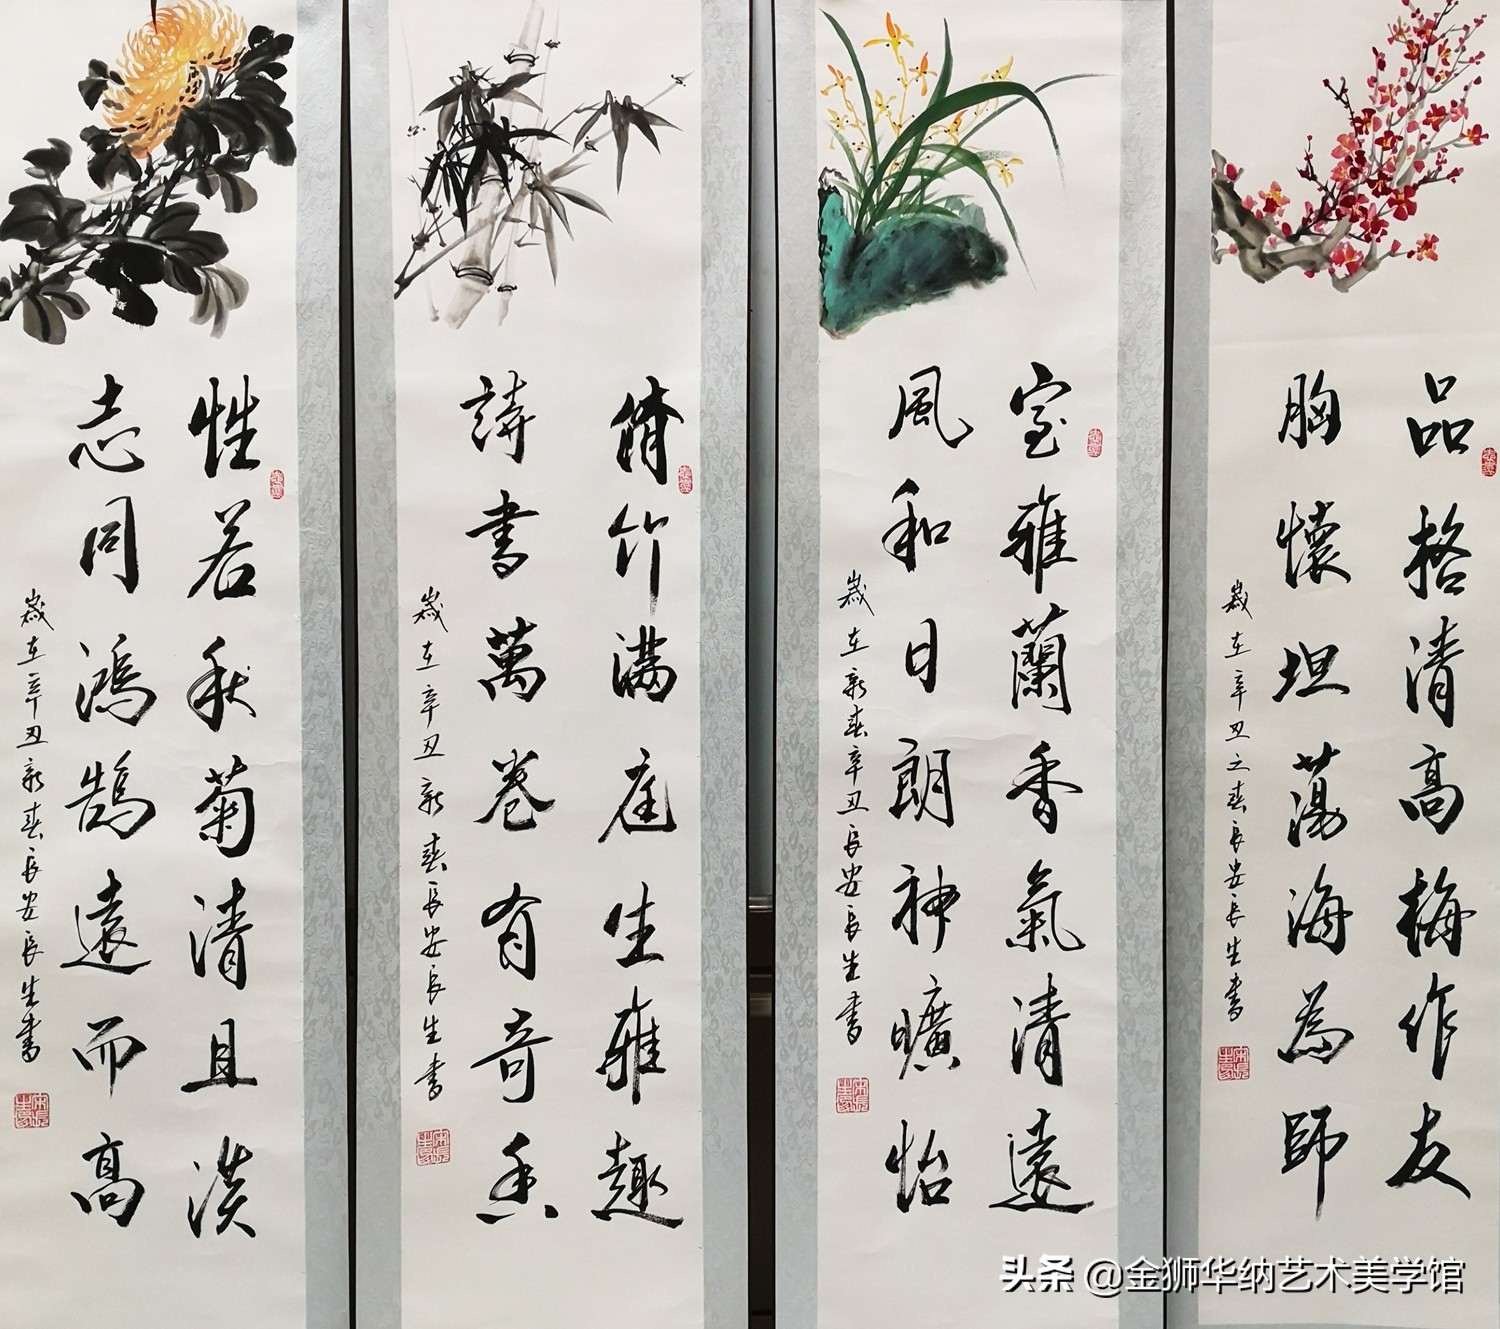 品格清高梅作友
胸懷坦蕩海為師
歲在辛丑之春長安長生書
室雅蘭香氣清遠
風和日朗神曠怡
歲在新春辛丑長安長生書
脩竹满庭生雅趣
詩書萬卷有奇香
歲在辛丑新春長安長生書
性若秋菊清且淡
志同鴻鵠遠而高
歲在辛丑新春長安長生書
头条 @金狮华纳艺术美学馆